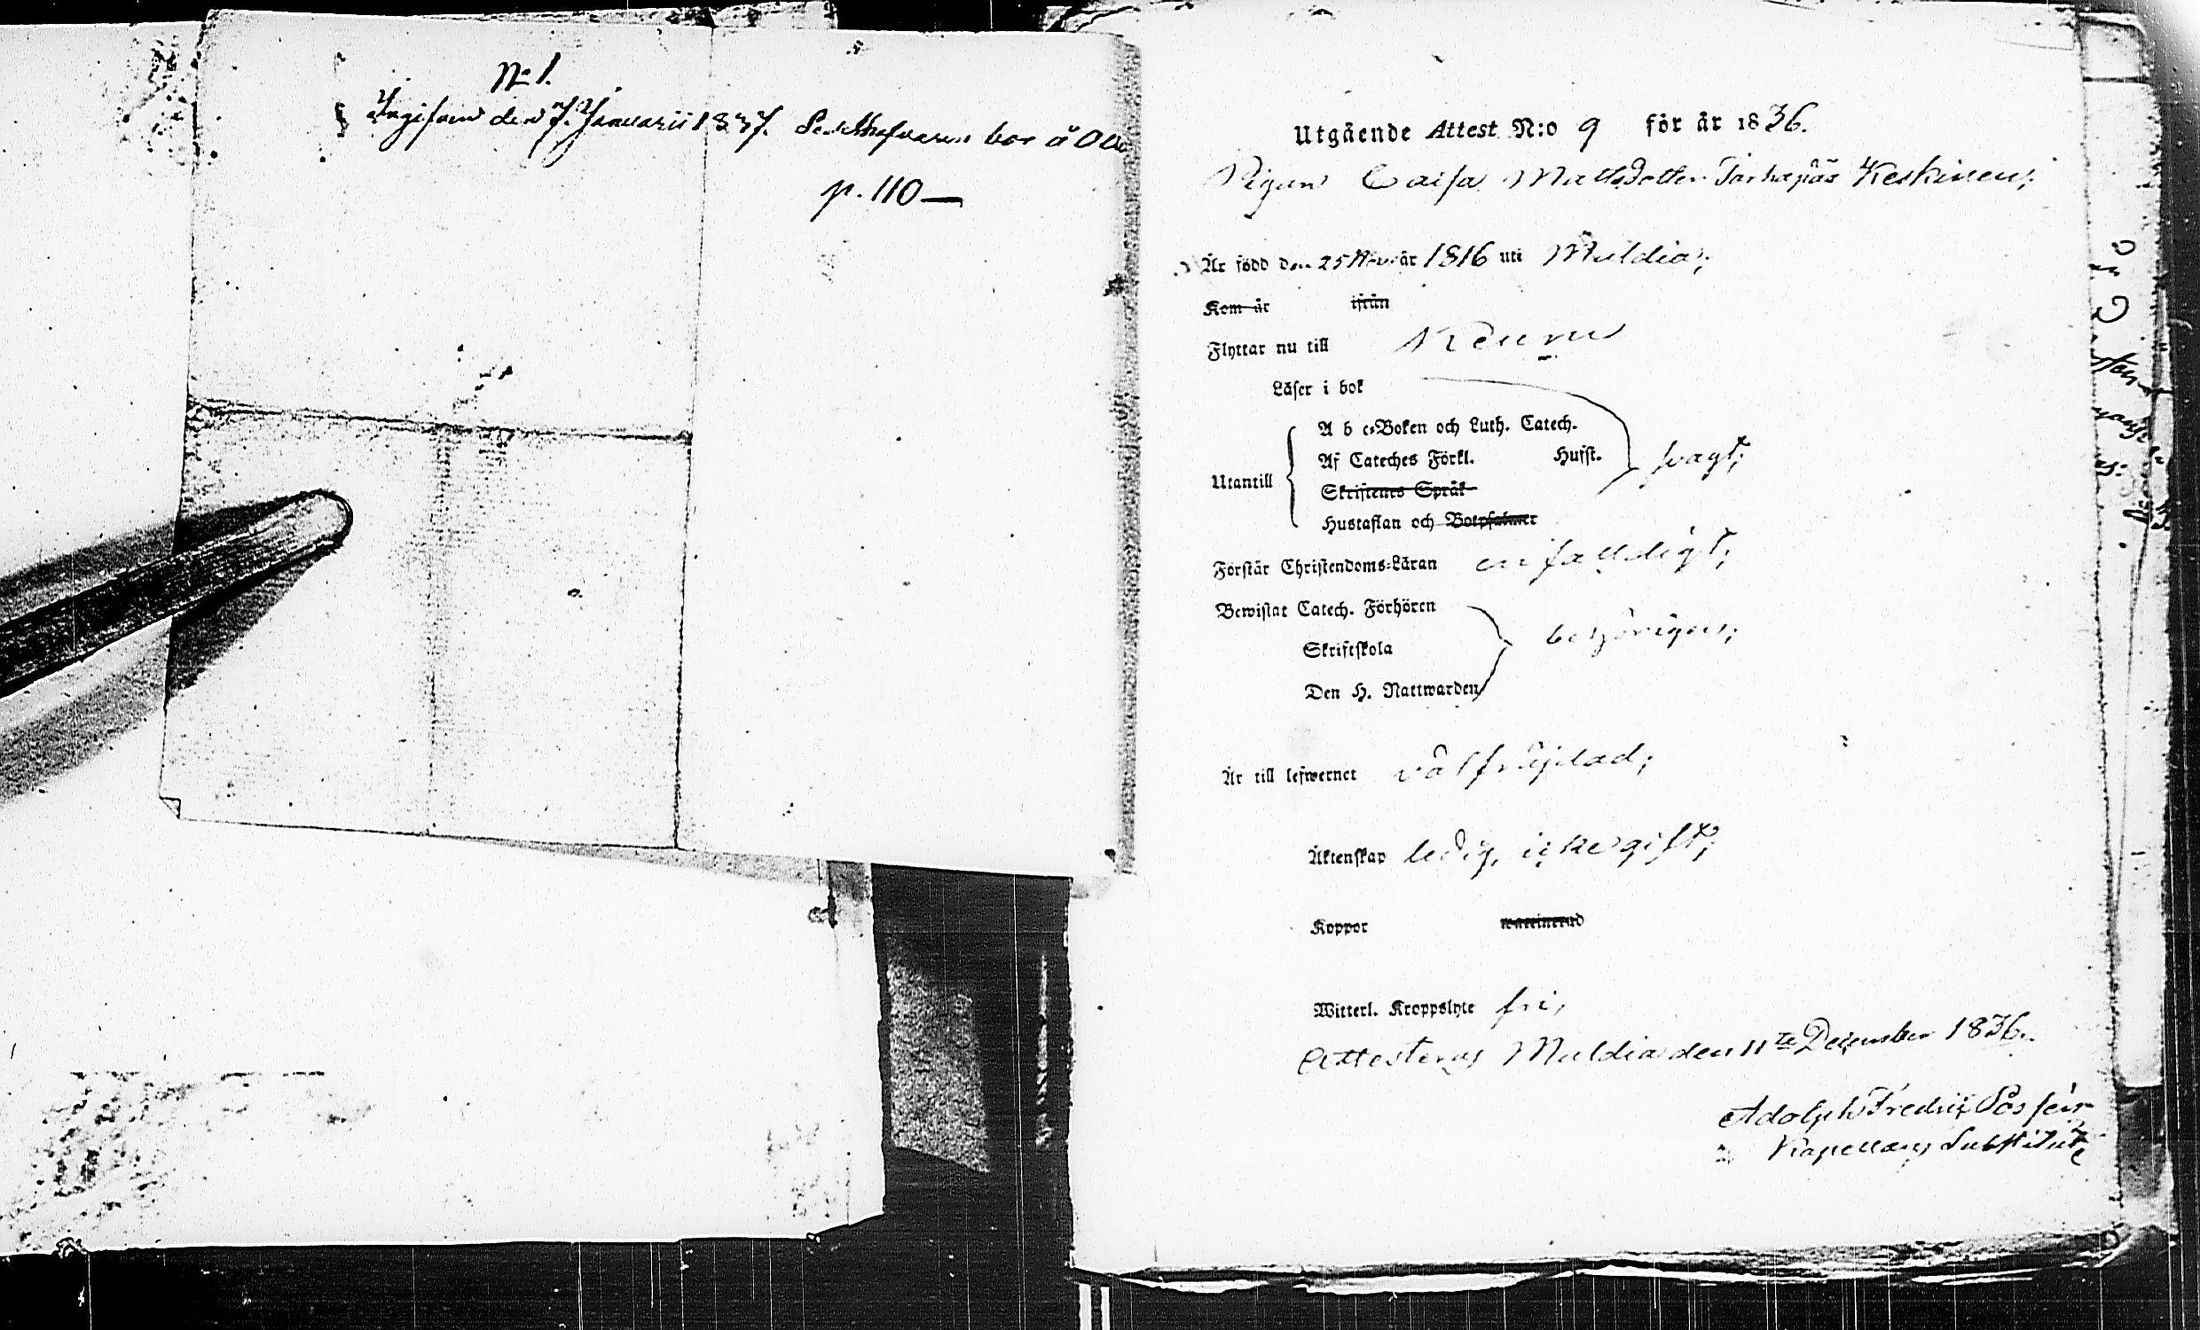 N:o 1.
Ingifven den 7. Januarii 1837. bor å
p. 110—
Utgående Attest N:o 9 för år 1836.
Pigan Caisa Mattsdotter Tarhapää Keskinen;
Är född den 25 Nov. år 1816 uti Muldia;
Kom år ifrån
Flyttar nu till Keuru
Läser i bok
A b c-Boken och Luth. Catech.
Af Cateches Förkl. Husst. svagt;
Utantill
Skriftens Språk
Hustaflan och Botpsalmer
Förstår Christendoms-Läran enfaldigt;
Bewistat Catech. Förhören
Skriftskola behörigen;
Den H. Nattwarden
Är till lefwernet välfräjdad;
Äktenskap ledig, icke gift;
Koppor waccinerad
Witterl. Kroppslyte fri,
Attesteras Muldia den 11te December 1836.
Adolph Fredric
Kapellans Substitut